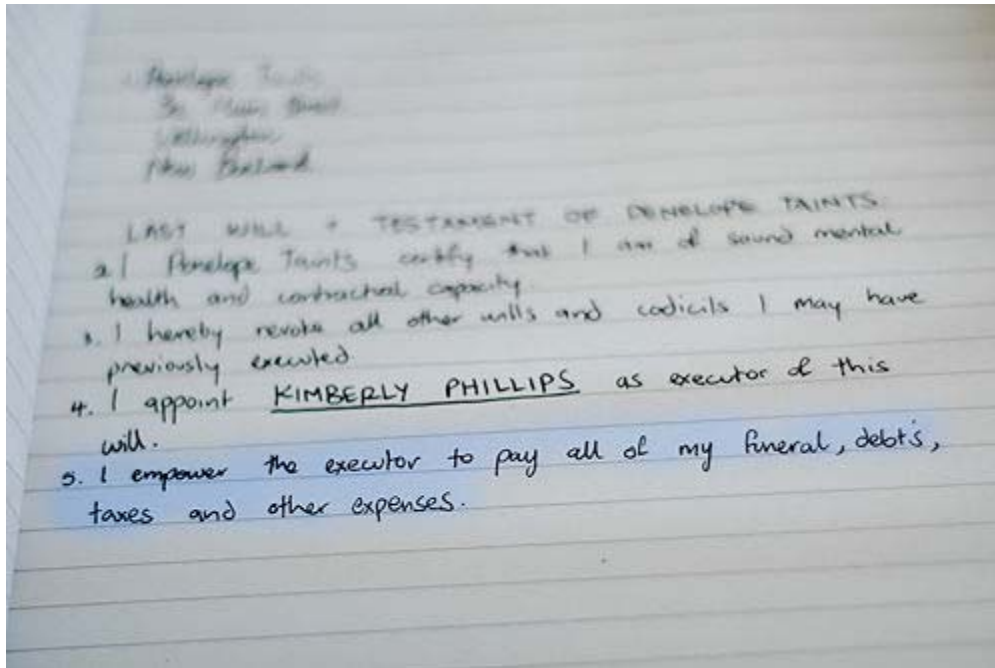 Penelope Taints
Main Street
Wellington
New Zealand
LAST WILL + TESTAMENT OF PENELOPE TAINTS.
2. I Penelope Taints certify that I am of sound mental
health and contractual capacity.
3. I hereby revoke all other wills and codicils I may have
previously executed
4. I appoint KIMBERLY PHILLIPS as executor of this
will.
5. I empower the executor to pay all of my funeral, debt's,
taxes and other expenses.